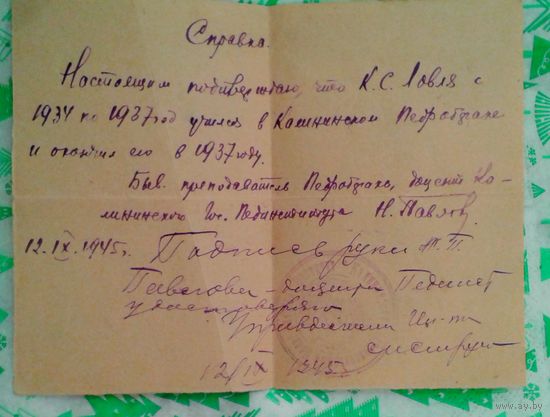 Справка.
Настоящим подтверждаю, что К. С. Ловля с
1934 по 1937 год учился в Калининском Педрабфаке
и окончил его в 1937 году.
Быв. преподаватель Педрабфака, доцент Ка-
лининского Гос. Пединститута Н. Павлов
12.IX.1945г. Подпись руки т. П.
Павлова - доцента Пединст
удостоверяю
Управделами Ин-та
12/IX 1945
www.ay.by